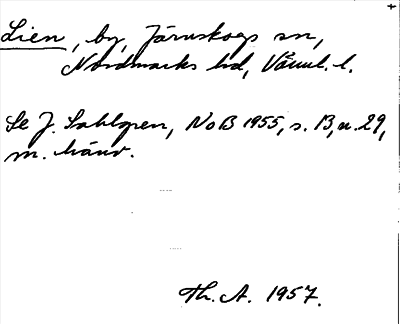 Lien, by, Järnskogs sn,
Nordmarks hd, Värml. l.
Se J. Sahlgren, NoB 1955, s. 13, n. 29,
m. hänv.
Th. A. 1957.